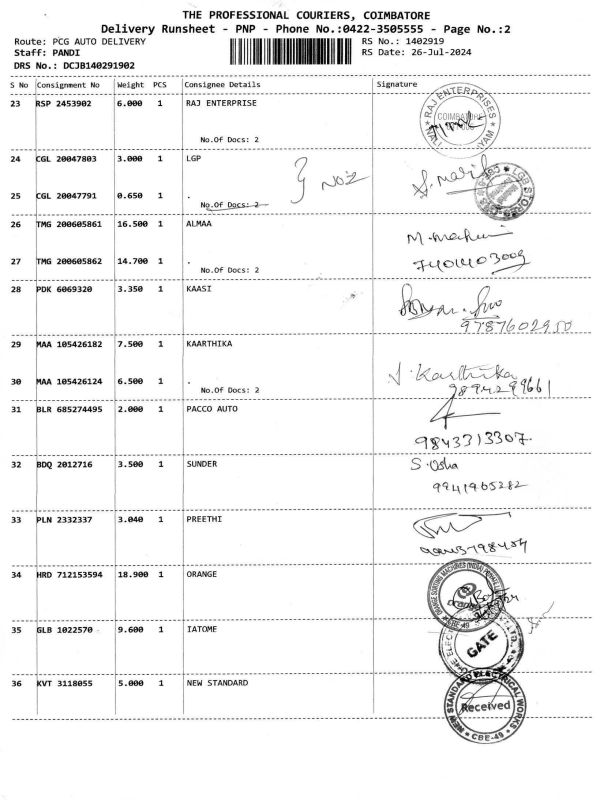 THE PROFESSIONAL COURIERS, COIMBATORE
Delivery Runsheet - PNP - Phone No.:0422-3505555 - Page No.:2
Route: PCG AUTO DELIVERY RS No.: 1402919
Staff: PANDI RS Date: 26-Jul-2024
DRS No.: DCJB140291902
S No Consignment No Weight PCS Consignee Details Signature
23 RSP 2453902 6.000 1 RAJ ENTERPRISE
RAJ ENTERPRISES
No.Of Docs: 2
24 CGL 20047803 3.000 1 LGP
NOZ
25 CGL 20047791 0.650 1 .
No.Of Docs: 2
26 TMG 200605861 16.500 1 ALMAA
27 TMG 200605862 14.700 1 .
7401403009
No.Of Docs: 2
28 PDK 6069320 3.350 1 KAASI
9787602950
29 MAA 105426182 7.500 1 KAARTHIKA
Karthika
30 MAA 105426124 6.500 1 .
No.Of Docs: 2
9894299661
31 BLR 685274495 2.000 1 PACCO AUTO
9843313307
32 BDQ 2012716 3.500 1 SUNDER
S. Osha
9941965282
33 PLN 2332337 3.040 1 PREETHI
34 HRD 712153594 18.900 1 ORANGE
35 GLB 1022570 9.600 1 IATOME
GATE
36 KVT 3118055 5.000 1 NEW STANDARD
NEW STANDARD ELECTRICAL WORKS
Received
CBE-49